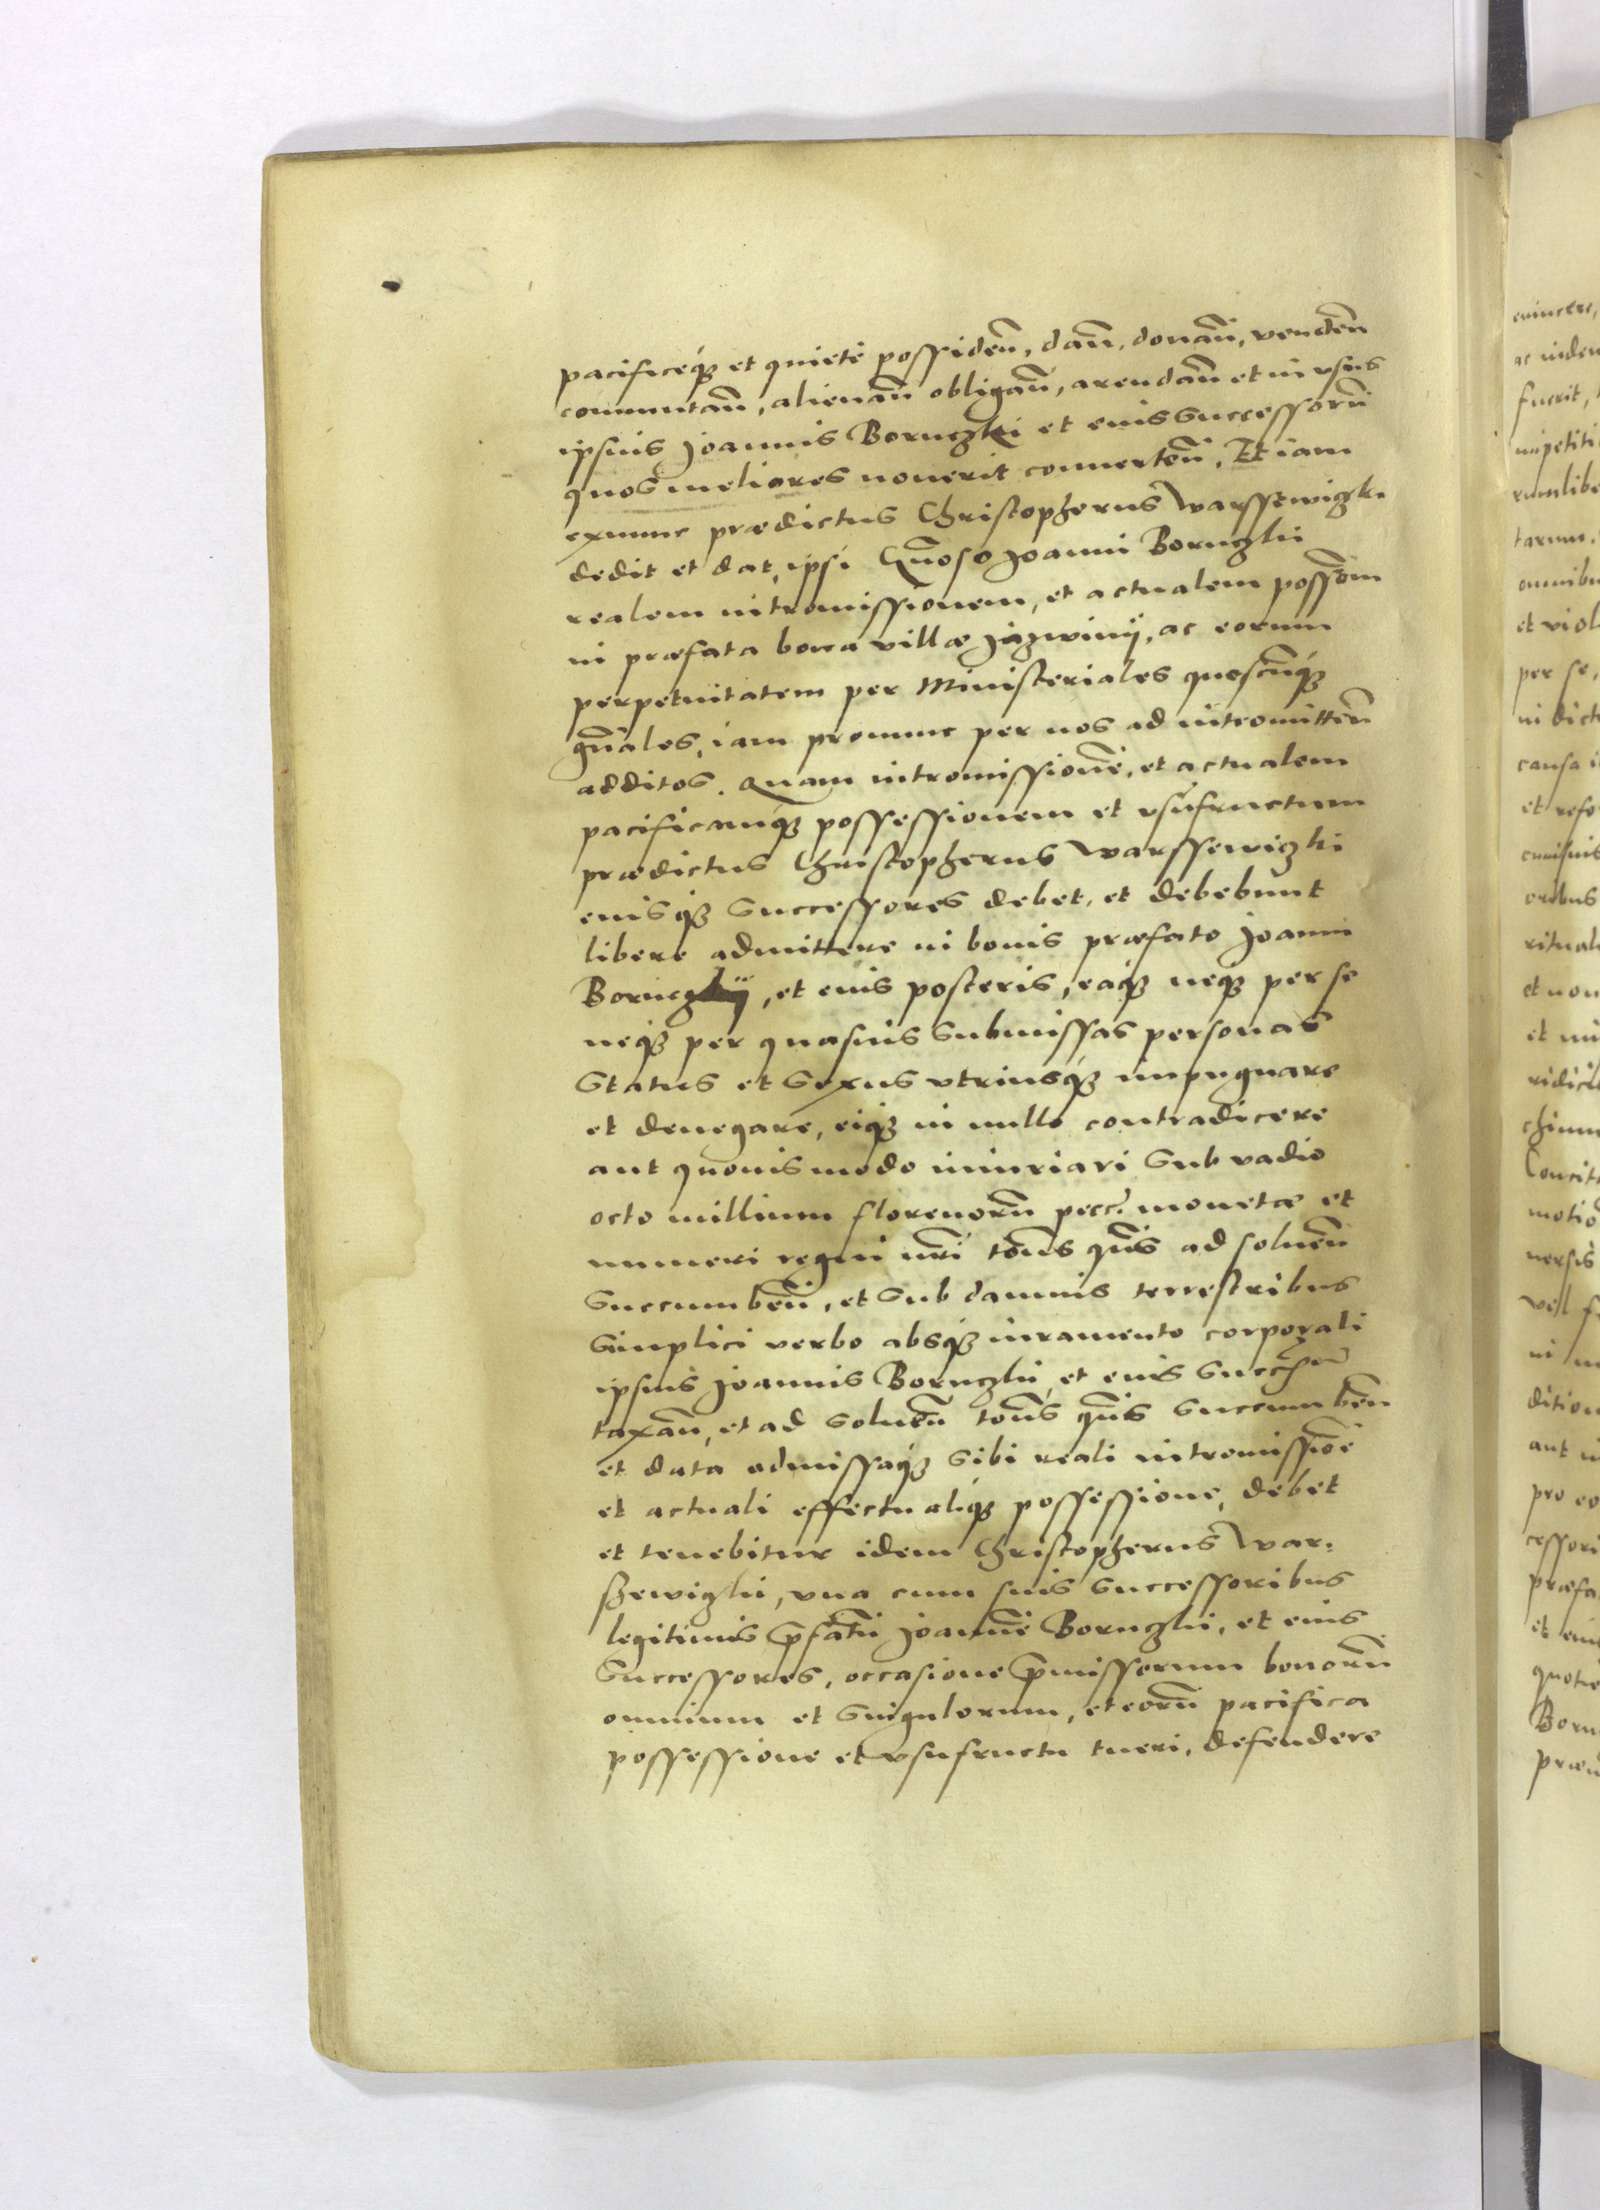 pacificeq3 et quiete possiden̄, dan̄, donan̄, venden̄
commutan̄, alienan̄ obligan̄, arendan̄ et in vsus
ipsius Joannis Boruczki et eius Successorū
quos meliores nouerit conuerten̄, Et iam
exnunc prædictus Christopherus Warssewiczki
dedit et dat, ipsi Gn̄oso Joanni Boruczki
realem intromissionem, et actualem possōem
in præfata bona villæ Jazwinÿ, ac eorum
perpetuitatem per Ministeriales quoscūq3
gn̄ales, iam pronunc per nos ad intromitten̄
additos. Quam intromissionē, et actualem
pacificamq3 possessionem et vsūfructum
prædictus Christopherus Warssewiczki
eiusq3 Successores debet, et debebunt
libere admittere in bonis præfato Joanni
Borucz, et eius posteris, eaq3 neq3 per se
neq3 per quasuis Submissas personas
Status et Sexus vtriusq3 impugnare
et denegare, eiq3 in nullo contradicere
aut quouismodo iniuriari Sub vadio
octo millium florenorū pecc. monetæ et
numeri regni nr̄i totīes qūes ad soluen̄
Succumben̄, et Sub damnis terrestribus
Simplici verbo absq3 iuramento corporali
ipsius Joannis Boruczki et eius
taxan̄, et ad Soluen̄ totīes qūes Succumben̄
et data admissaq3 Sibi reali intromissiōe
et actuali effectualiq3 possessione, debet
et tenebitur idem Christopherus War:
szewiczki, vna cum suis Successoribus
legitimis p̄fatū Joannē Boruczki, et eius
Successores, occasione p̄missorum bonorū
omnium et Singulorum, et eorū pacifica
possessione et vsufructu tueri, defendere